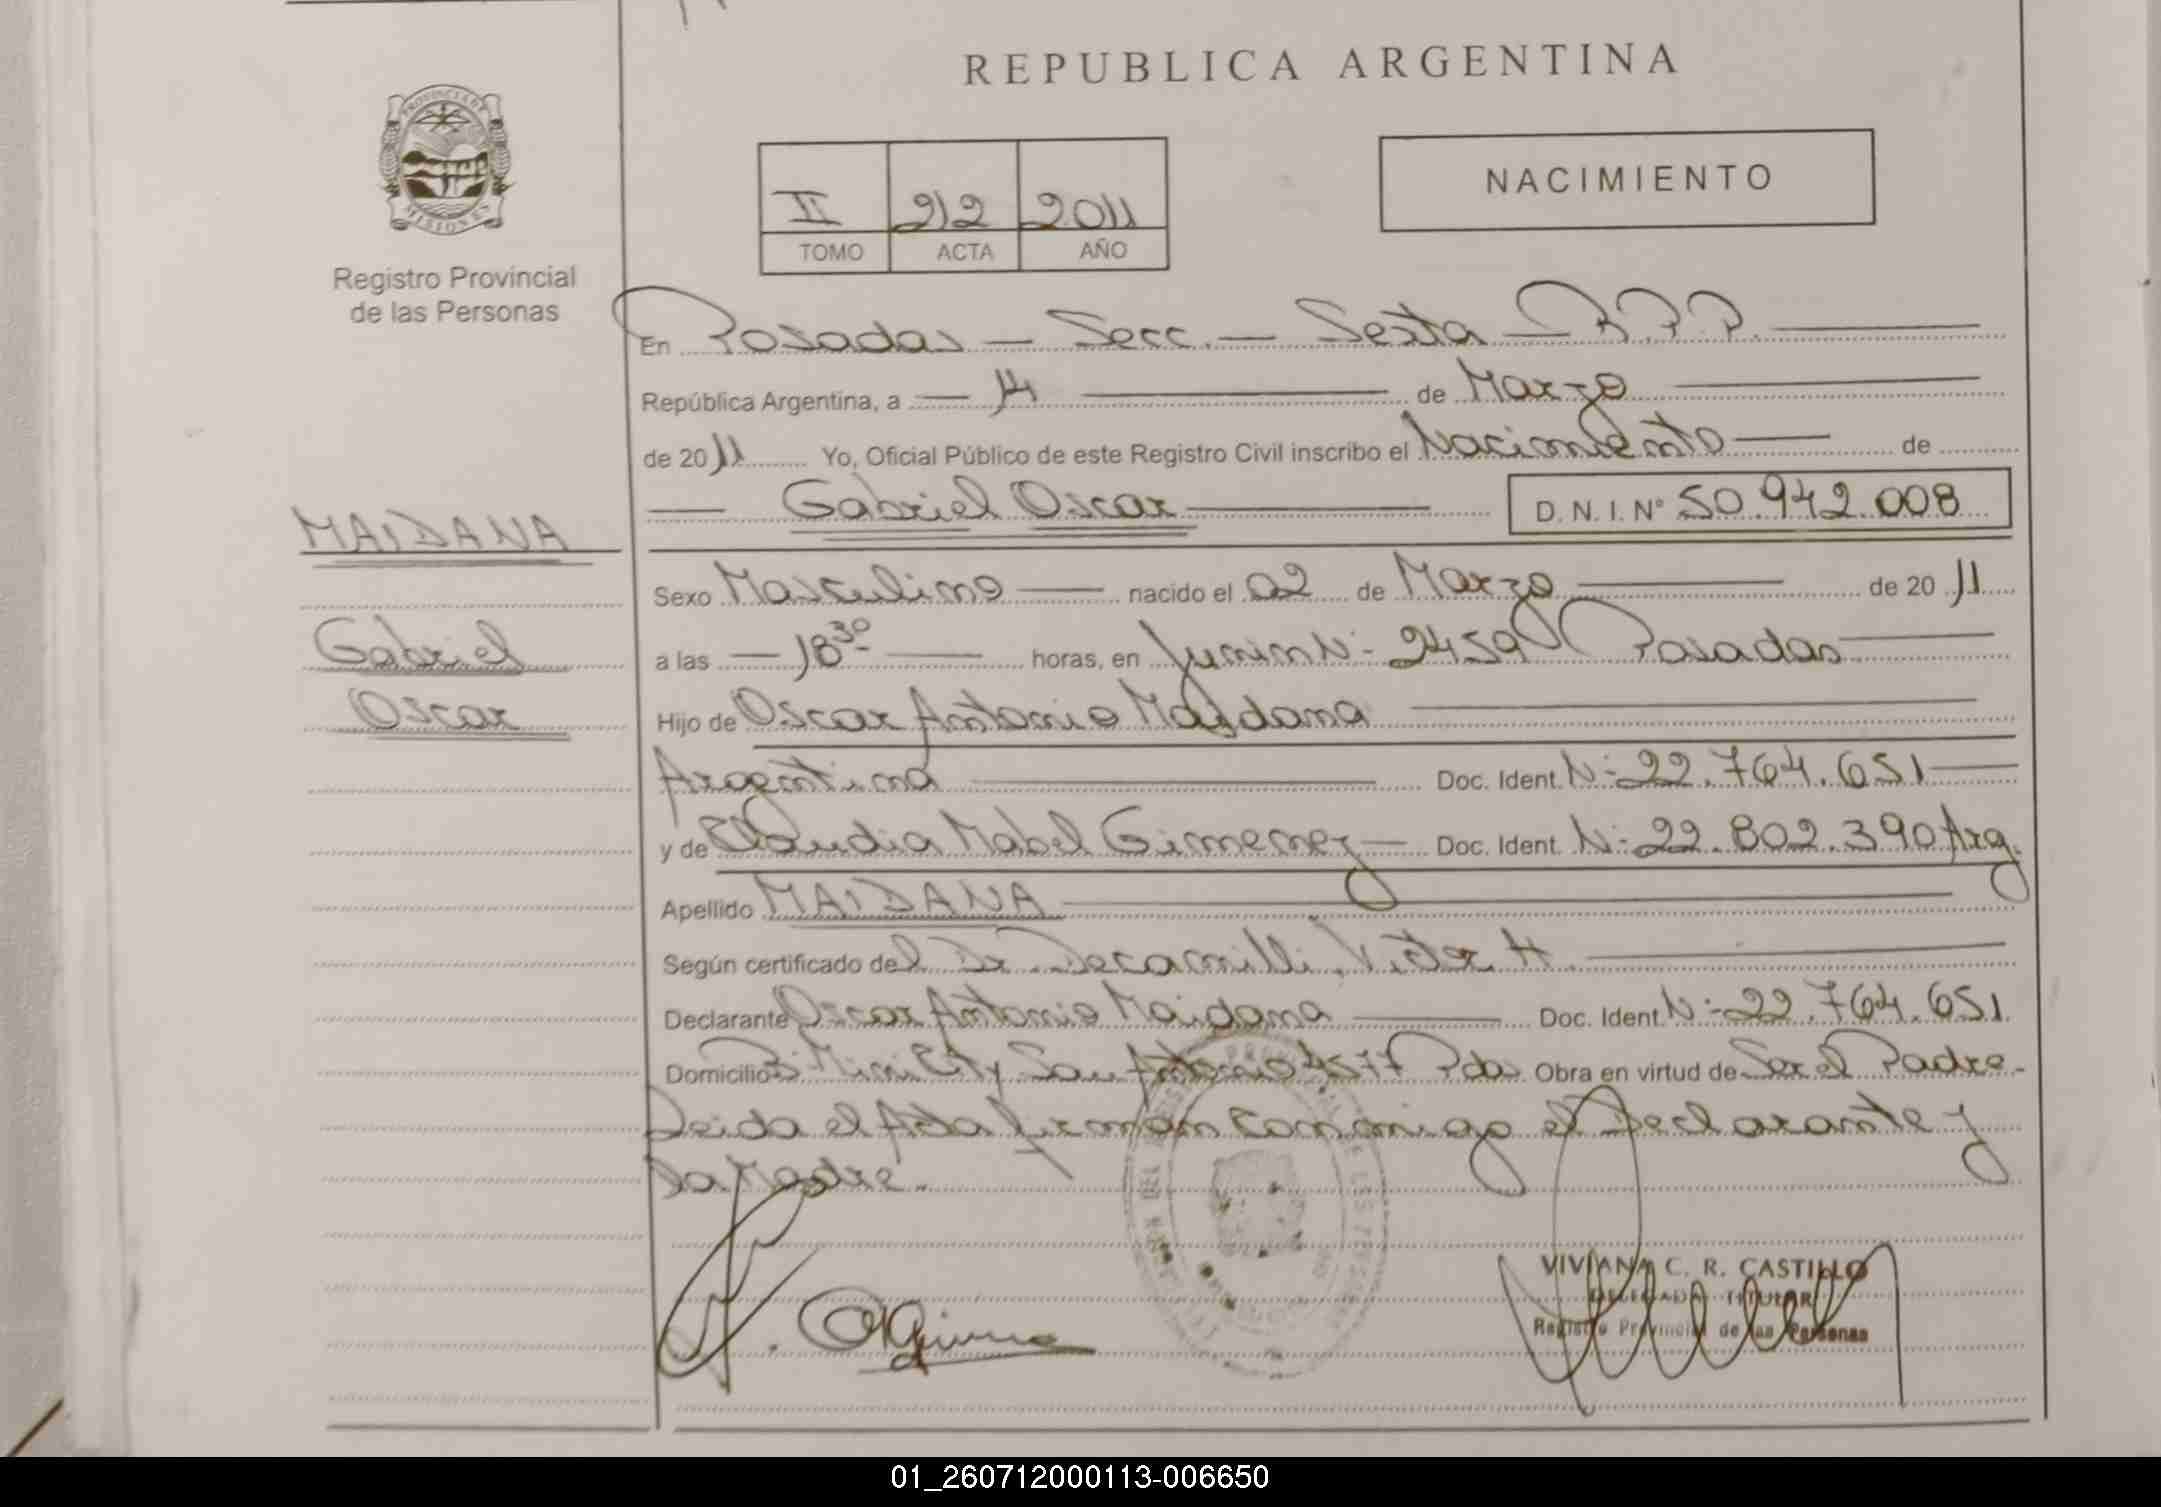 REPUBLICA ARGENTINA
PROVINCIA DE
MISIONES
Registro Provincial
de las Personas
II 212 2011
TOMO ACTA AÑO
NACIMIENTO
En Posadas — Secc. — Sexta — R.P.P.
República Argentina, a — 14 — de Marzo
de 2011 Yo, Oficial Público de este Registro Civil inscribo el Nacimiento — de
— Gabriel Oscar — D.N.I. Nº 50.942.008
MAIDANA
Gabriel
Oscar
Sexo Masculino — nacido el 02 de Marzo — de 2011
a las — 18 30 — horas, en Junin Nº 2459 Posadas
Hijo de Oscar Antonio Maidana
Argentina — Doc. Ident. Nº 22.764.651
y de Claudia Mabel Gimenez — Doc. Ident. Nº 22.802.390 Arg.
Apellido MAIDANA
Según certificado del Dr. Decamilli, Victor H.
Declarante Oscar Antonio Maidana — Doc. Ident. Nº 22.764.651.
Domicilio Bº Mini City San Antonio 4577 Pdas Obra en virtud de Ser el Padre.-
Leida el Acta firman conmigo el Declarante y
la Madre.
VIVIANA C. R. CASTILLO
DELEGADA TITULAR
Registro Provincial de las Personas
01_260712000113-006650